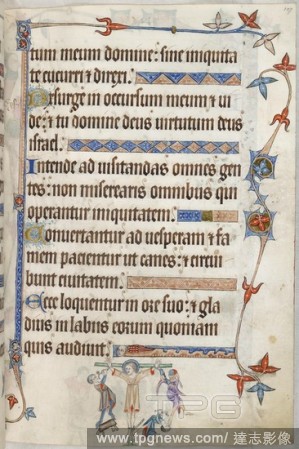 tum meum domine: sine iniquita
te cucurri et direxi.
Exsurge in occursum meum et ui
de: et tu domine deus uirtutum deus
israel.
Intende ad uisitandas omnes gen
tes: non miserearis omnibus qui
operantur iniquitatem.
Conuertantur ad uesperam et fa
mem pacientur ut canes: et circui
bunt ciuitatem.
Ecce loquentur in ore suo: et gla
dius in labiis eorum quoniam
quis audiuit.
TPG
www.tpgnews.com/達志影像